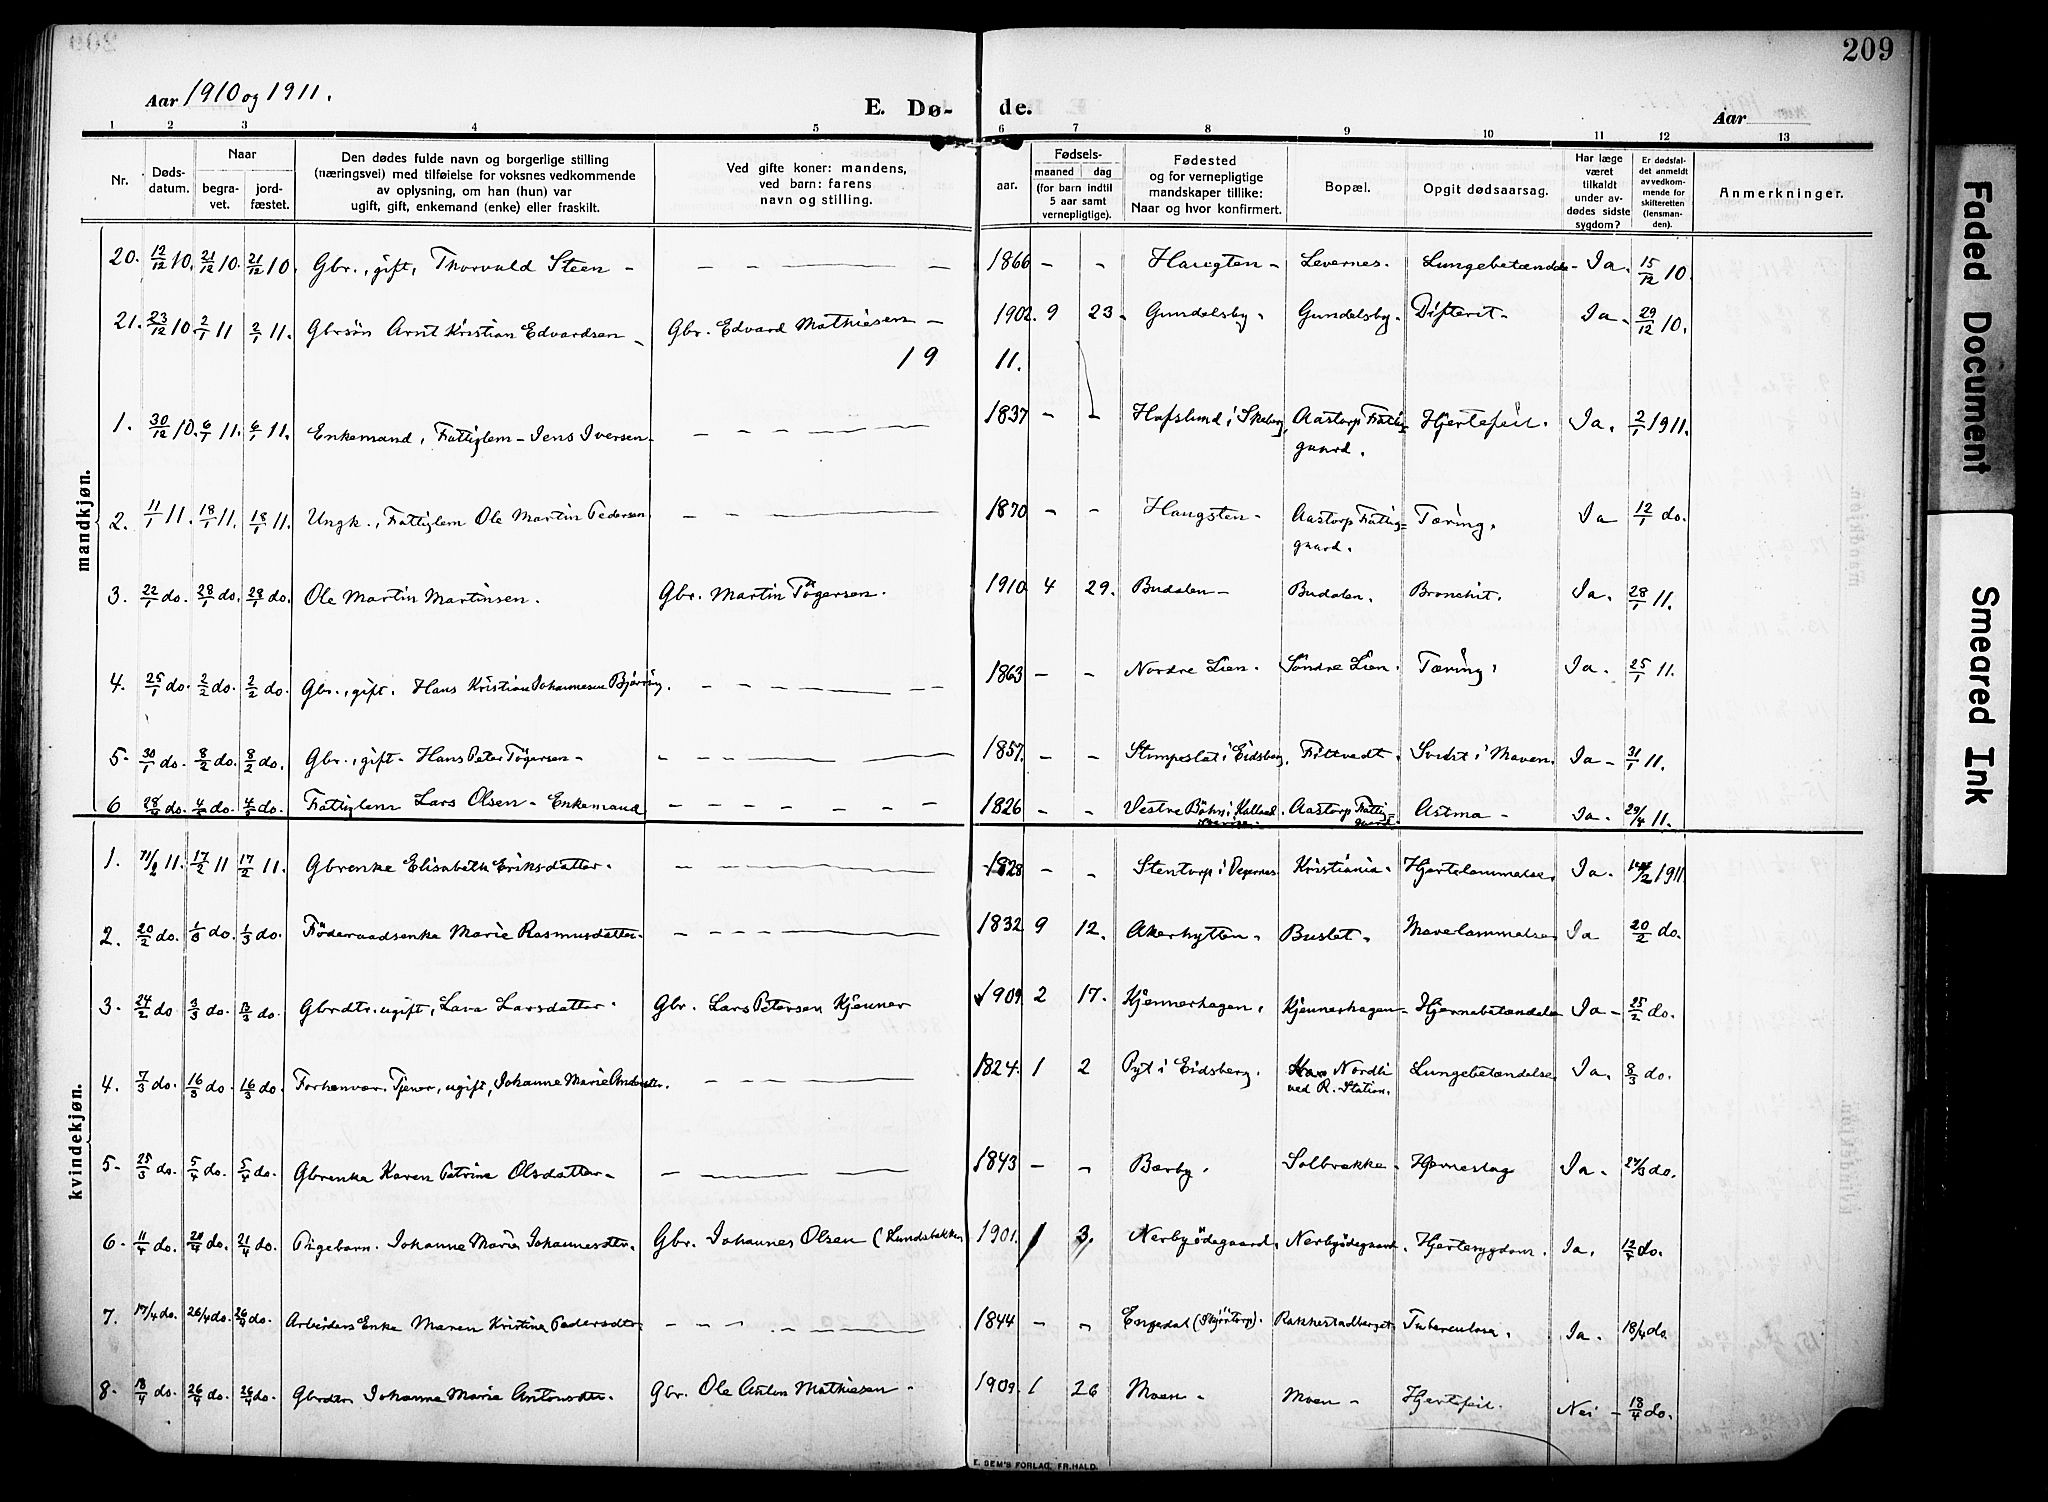 209
Aar 1910 og 1911.
E. Dø- de.
Aar
1 2 3 4 5 6 7 8 9 10 11 12 13
Nr.
Dødsdatum.
Naar
begravet.
jordfæstet.
Den dødes fulde navn og borgerlige stilling
(næringsvei) med tilføielse for voksnes vedkommende
av oplysning, om han (hun) var
ugift, gift, enkemand (enke) eller fraskilt.
Ved gifte koner: mandens,
ved barn: farens
navn og stilling.
aar.
Fødsels-
maaned dag
(for barn indtil
5 aar samt
vernepligtige).
Fødested
og for vernepligtige
mandskaper tillike:
Naar og hvor konfirmert.
Bopæl.
Opgit dødsaarsag.
Har læge
været
tilkaldt
under av-
dødes sidste
sygdom?
Er dødsfal-
det anmeldt
av vedkom-
mende for
skifteretten
(lensman-
den).
Anmerkninger.
mandkjøn.
20. 12/12 10. 21/12 10. 21/12 10. Gbr., gift, Thorvald Steen - — — — 1866 - - Haugten - Levernes. Lungebetændelse - Ja. 15/12 10.
21. 23/12 10. 2/1 11 2/1 11. Gbrsøn Arnt Kristian Edvardsen - Gbr. Edvard Mathiesen - 1902. 9 23. Gundelsby. Gundelsby. Difterit. Ja - 29/12 10.
19 11.
1. 30/12 10. 6/1 11. 6/1 11. Enkemand, Fattiglem - Jens Iversen - — — — 1837 - - Hafslund i Skeberg, Aastorp Fattig= Hjertefeil. Ja. 2/1 1911.
gaard.
2. 11/1 11. 18/1 11. 18/1 11. Ungk., Fattiglem Ole Martin Pedersen — — — 1870 - - Haugsten - Aastorp Fattig= Tæring. Ja 12/1 do.
gaard.
3. 22/1 do. 28/1 do. 28/1 do. Ole Martin Martinsen. Gbr. Martin Tøgersen. 1910 4 29. Budalen - Budalen. Bronchit. Ja. 28/1 11.
4. 25/1 do. 2/2 do. 2/2 do. Gbr., gift. Hans Kristian Johannesen Bjørring. — — — 1863 - - Nordre Lien. Søndre Lien. Tæring. Ja. 25/1 11.
5- 30/1 do. 8/2 do. 8/2 do. Gbr., gift - Hans Peter Tøgersen - — — — 1857. - - i Eidsberg. i Maven. Ja - 31/1 11.
6 do. do. do. Fattiglem Lars Olsen - Enkemand — — — 1826 - - Vestre Aastorp Fattig= Astma - Ja. 29/4 11.
gaard.
kvindekjøn.
1. 11/2 11. 17/2 11 17/2 11. Gbrenke Elisabeth Eriksdatter. — — — 1828 - - Stentorp i Degernes Kristiania. Hjertelammelse. Ja. 14/2 1911
2. 20/2 do. 1/3 do. 1/3 do. Føderaadsenke Marie Rasmusdatter. — — — 1832 9 12. Akerhytten. Buslet. Mavelammelse Ja 20/2 do.
3. 24/2 do 3/3 do. 3/3 do. Gbrdtr. ugift, Lara Larsdatter. Gbr. Lars Petersen Kjenner 1909. 2 17. Kjennerhagen. Kjennerhagen - Hjernebetændelse Ja - 25/2 do.
4. 7/3 do. 16/3 do. 16/3 do. Forhenvær. Tjener, ugift, Johanne Marie Andersdtr. — — — 1824. 1 2 Pyt i Eidsberg. Nordli Lungebetændelse Ja. 8/3 do.
ved R. Station.
5- 25/3 do. 5/4 do. 5/4 do. Gbrenka Karen Petrine Olsdatter - — — — 1843 - - Bærby. Solbrække. Hjerneslag Ja. 27/3 do.
6. 11/4 do. 20/4 do. 21/4 do. Pigebarn. Johanne Marie Johannesdtr. Gbr. Johannes Olsen (Lundebakken) 1901. 1 3. Nerbyødegaard. Nerbyødegaard. Hjertesygdom. Ja. 12/4 do.
7. 17/4 do. 26/4 do. 26/4 do. Arbeiders Enke Maren Kristine Pedersdtr. — — — 1844 - - Engedal (Skjørtorp). Rakkestadberget. Tuberculose. Ja. 18/4 do.
8. 18/4 do. 26/4 do. 26/4 do. Gbrdtr Johanne Marie Antonsdtr. Gbr. Ole Anton Mathiesen - 1909. 1 26 Moen - Moen - Hjertefeil. Nei - 18/4 do.
E. SEM'S FORLAG, FR.HALD.
Faded Document
Smeared Ink